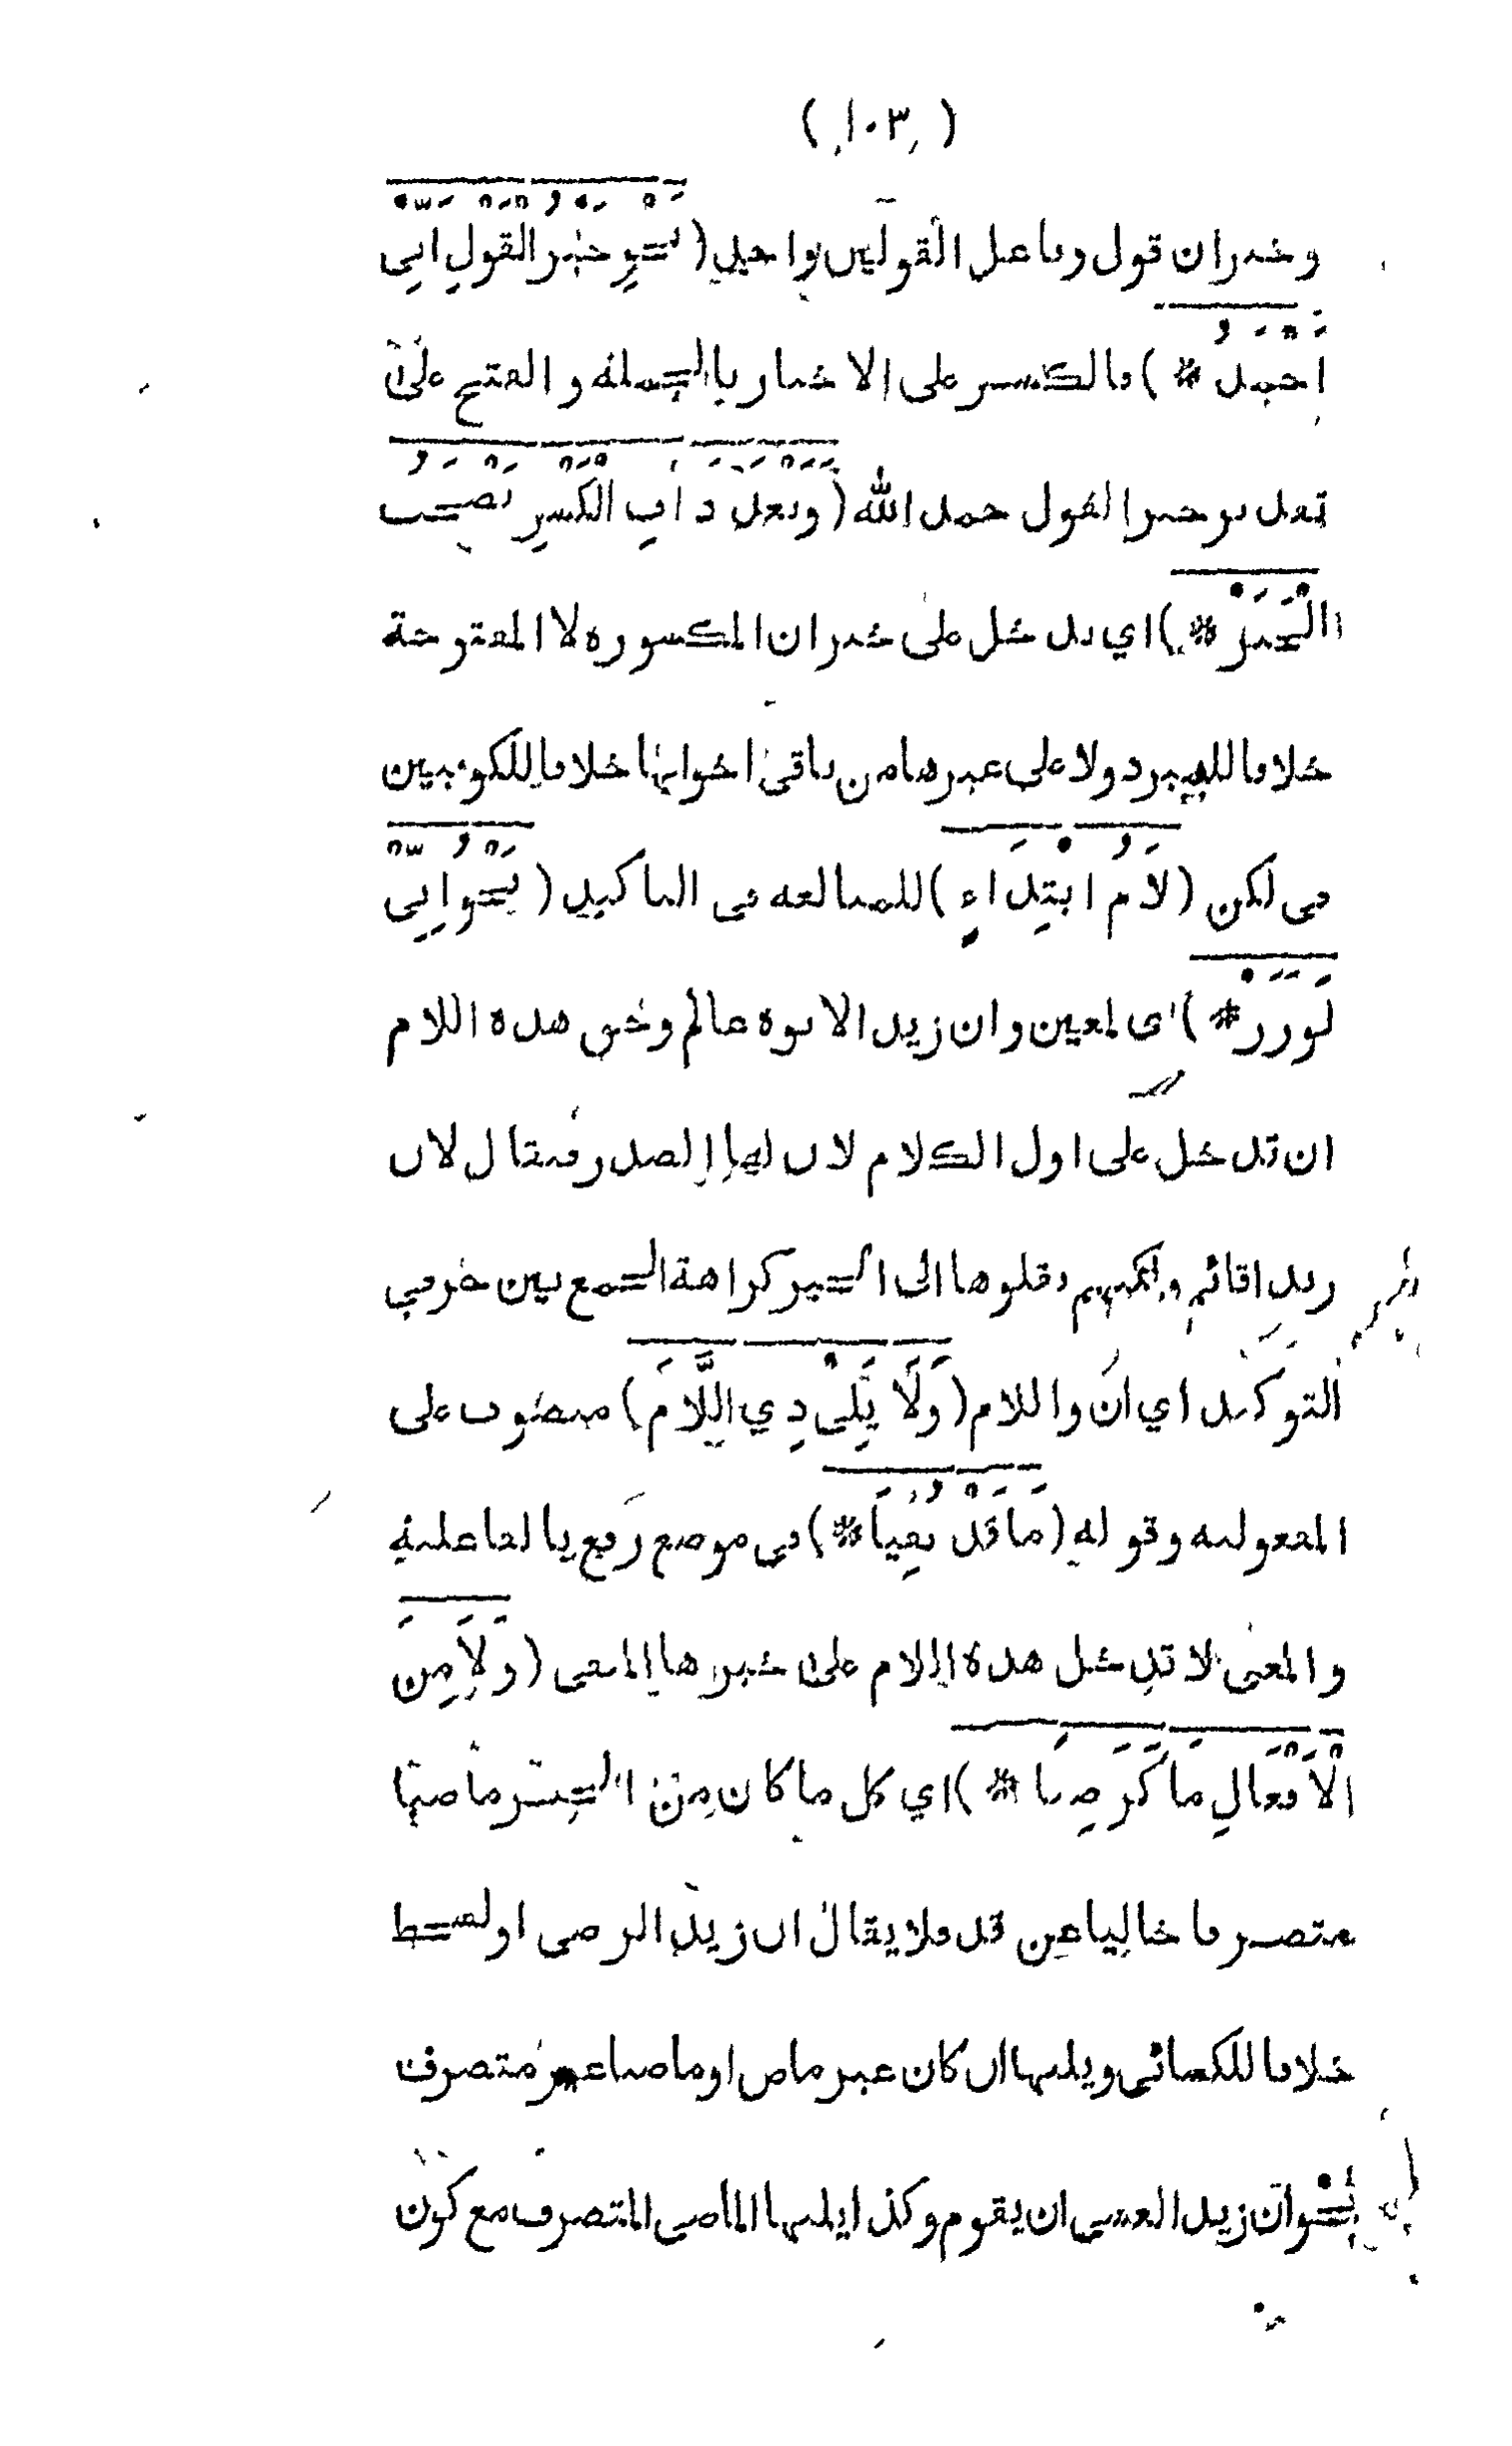 (١٠٣)
وخبران قول وفاعل القولين واحد (نَحْوُ خَيْرُ الْقَوْلِ اِنِّي
اَحْمَدُ *) فالكسر على الاخبار بالجملة و الفتح على
تقدير خير القول حمد الله (وَبَعْدَ ذَاتِ الْكَسْرِ تَصْحَبُ
الْخَبَرْ *) اي تدخل على خبران المكسورة لا المفتوحة
خلافا للمبرد ولا على غيرها من باقى اخواتها خلافا للكوفيين
فى لكن (لَامُ ابْتِدَاءٍ) للمبالغة فى التاكيد (نَحْوُ اِنِّي
لَوَزَرْ *) اى لمعين وان زيدا لابوه عالم وحق هذه اللام
ان تدخل على اول الكلام لان لها الصدر فيقال لان
زيدا قائم ولكنهم نقلوها الى الخبر كراهة الجمع بين حرفي
التوكيد اي ان واللام (وَلَا يَلِى ذِي اللَّامَ) منصوب على
المفعولية وقوله (مَا قَدْ نُفِيَا *) فى موضع رفع بالفاعلية
والمعنى لا تدخل هذه اللام على خبرها المنفى (وَلَا مِنَ
الْاَفْعَالِ مَا كَرَضِيَا *) اي كل ما كان من الخبر ماضيا
متصرفا خاليا عن قد فلا يقال ان زيدا لرضى اولسخط
خلافا للكسائى ويليها ان كان غير ماض اوماضيا غير متصرف
نحو ان زيدا لعسى ان يقوم وكذا يليها الماضى المتصرف مع كون